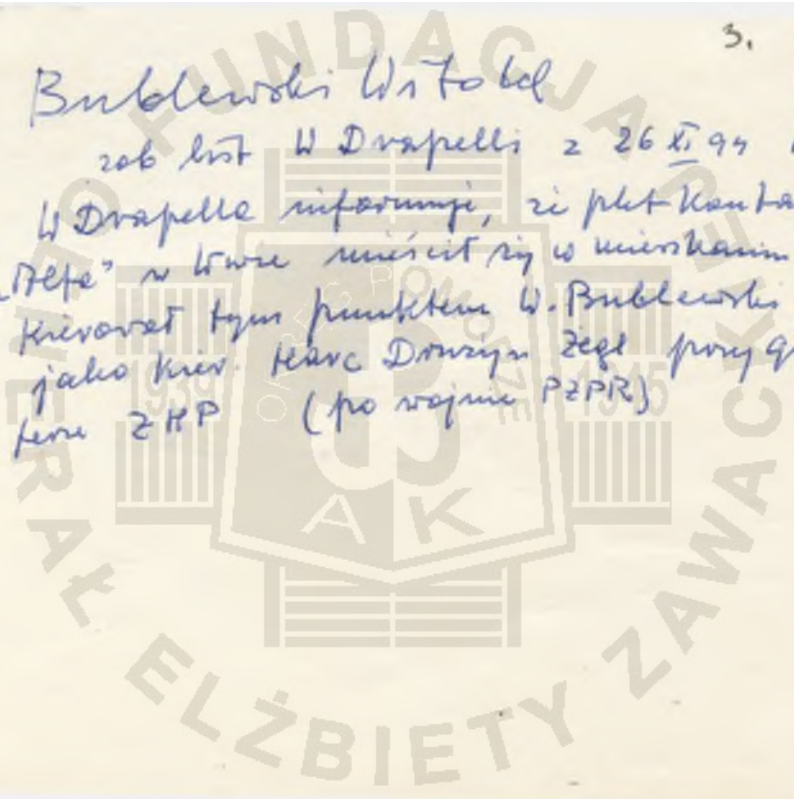 3.
Bublewski Witold
zob list W Drapelli z 26 XI 94
W Drapella informuje, że pkt Konta
„Alfa” w mieścił się w mieszkaniu
Kierował tym punktem W. Bublewski
jako kier. Harc Drużyn Żegl przy
ZHP (po wojnie PZPR)
FUNDACJA GENERAŁ ELŻBIETY ZAWACKIEJ
OKRĘG POMORZE
1939 1945
AK